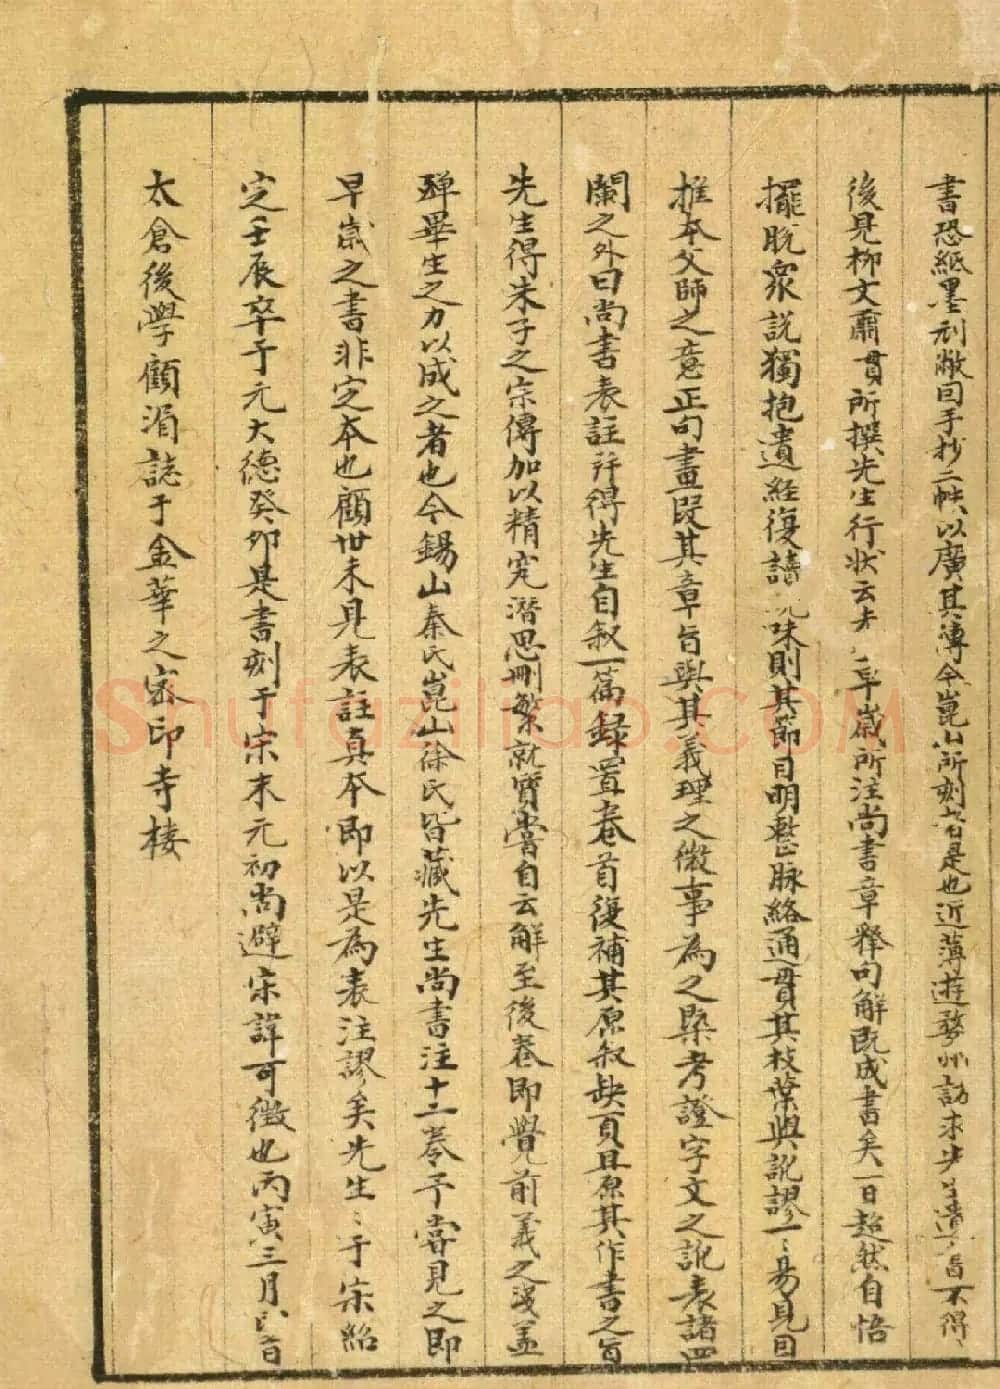 書恐紙墨刓敝回手抄二帙以廣其傳今崑山所刻者是也近薄遊婺州訪求先生遺書不得
後見柳文肅貫所撰先生行狀云先早歲所注尚書章釋句解既成書矣一日超然自悟
擺脫衆說獨抱遺經復讀玩味則其節目明整脉絡通貫其枝葉與訛謬一〻易見因
推本父師之意正句畫段其章旨與其義理之微事為之槩考證字文之訛表諸四
闌之外曰尚書表註并得先生自叙一篇録置卷首復補其原叙缺頁且原其作書之旨
先生得朱子之宗傳加以精究潛思刪繁就實嘗自云解至後卷即覺前義之淺盖
殫畢生之力以成之者也今錫山秦氏崑山徐氏皆藏先生尚書注十二卷予嘗見之即
早歲之書非定本也顧世未見表註真本即以是為表注謬矣先生〻于宋紹
定壬辰卒于元大德癸卯是書刻于宋末元初尚避宋諱可徵也丙寅三月
太倉後學顧湄誌于金華之密印寺樓
Shufaziliao.COM